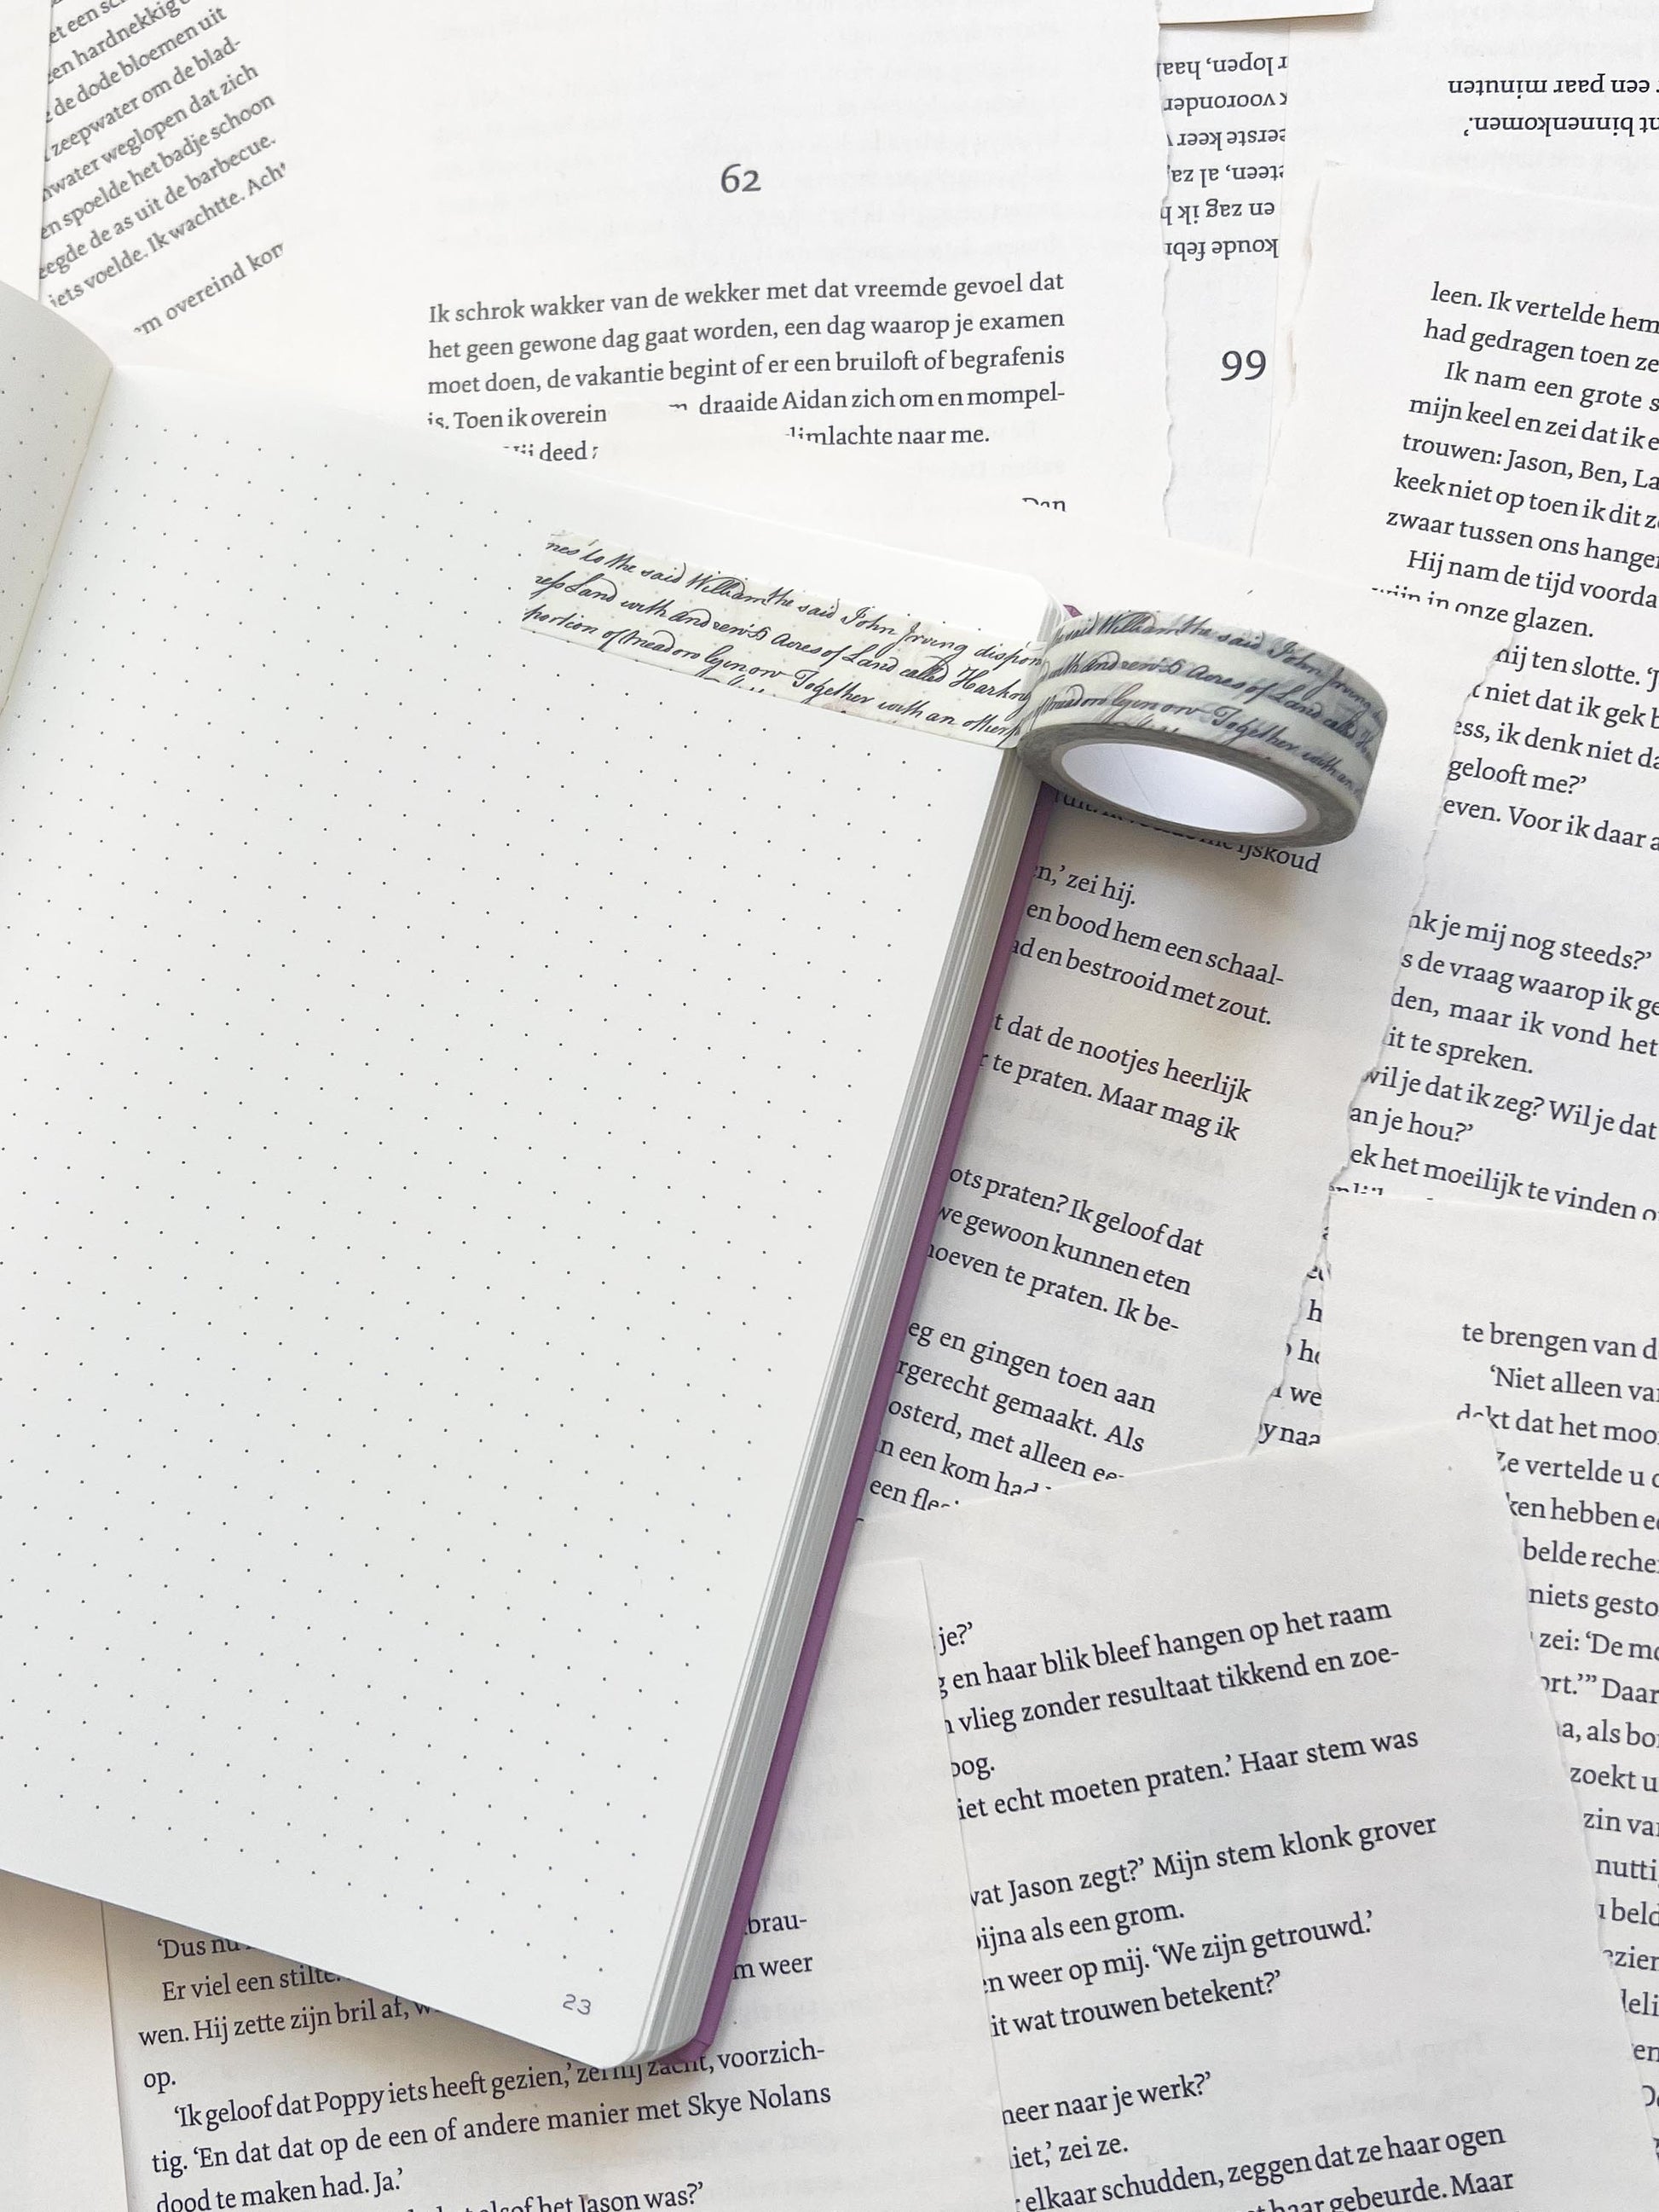 een hardnekkig
de dode bloemen uit
zeepwater om de blad-
water weglopen dat zich
en spoelde het badje schoon
de as uit de barbecue.
iets voelde. Ik wachtte.
overeind
62
Ik schrok wakker van de wekker met dat vreemde gevoel dat
het geen gewone dag gaat worden, een dag waarop je examen
moet doen, de vakantie begint of er een bruiloft of begrafenis
is. Toen ik overein draaide Aidan zich om en mompel-
deed glimlachte naar me.
koude febr
en zag ik
al
eerste keer
vooronder
lopen,
99
nt binnenkomen.’
een paar minuten
leen. Ik vertelde hem
had gedragen toen ze
Ik nam een grote s
mijn keel en zei dat ik
trouwen: Jason, Ben, La
keek niet op toen ik dit
zwaar tussen ons hangen
Hij nam de tijd voorda
in onze glazen.
hij ten slotte. ‘J
niet dat ik gek
ess, ik denk niet da
gelooft me?’
even. Voor ik daar
nk je mij nog steeds?’
s de vraag waarop ik ge
den, maar ik vond het
it te spreken.
wil je dat ik zeg? Wil je dat
an je hou?’
ek het moeilijk te vinden
nes to the said William the said John Irving dispon
Land with Acres of Land called
portion of Together with an other
said William the said John Irving
Acres of Land
Together with an
ijskoud
n,’ zei hij.
en bood hem een schaal-
ad en bestrooid met zout.
t dat de nootjes heerlijk
r te praten. Maar mag ik
ots praten? Ik geloof dat
we gewoon kunnen eten
hoeven te praten. Ik be-
eg en gingen toen aan
rgerecht gemaakt. Als
osterd, met alleen ee
in een kom had
een
h
we
y naa
te brengen van d
‘Niet alleen va
dekt dat het moo
Ze vertelde u
ken hebben
belde reche
niets gesto
zei: ‘De mo
ort.’” Daar
a, als bo
zoekt u
zin va
nutti
beld
ezien
deli
en
je?’
en haar blik bleef hangen op het raam
vlieg zonder resultaat tikkend en zoe-
oog.
iet echt moeten praten.’ Haar stem was
wat Jason zegt?’ Mijn stem klonk grover
bijna als een grom.
en weer op mij. ‘We zijn getrouwd.’
it wat trouwen betekent?’
neer naar je werk?’
iet,’ zei ze.
elkaar schudden, zeggen dat ze haar ogen
haar gebeurde. Maar
23
‘Dus nu brau-
Er viel een stilte. m weer
wen. Hij zette zijn bril af,
op.
‘Ik geloof dat Poppy iets heeft gezien,’ zei hij zacht, voorzich-
tig. ‘En dat dat op de een of andere manier met Skye Nolans
dood te maken had. Ja.’
alsof het Jason was?’